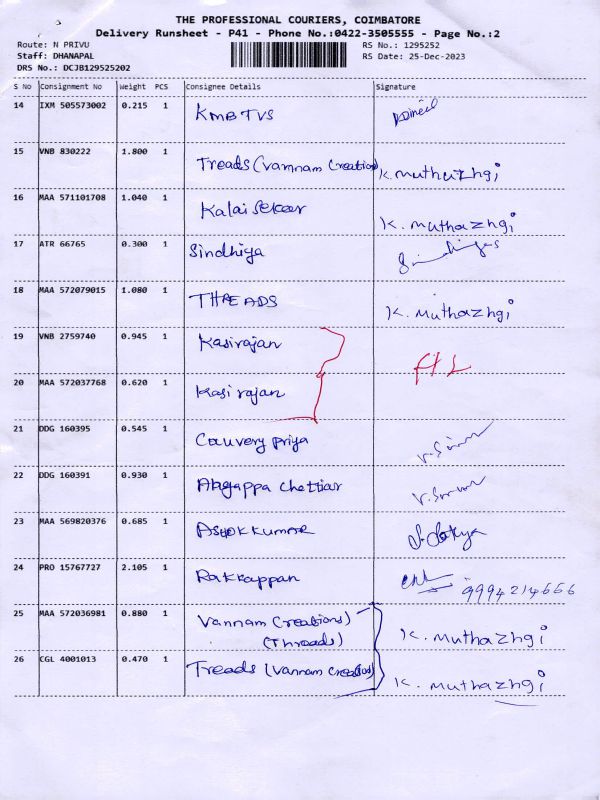 THE PROFESSIONAL COURIERS, COIMBATORE
Delivery Runsheet - P41 - Phone No.:0422-3505555 - Page No.:2
Route: N PRIVU RS No.: 1295252
Staff: DHANAPAL RS Date: 25-Dec-2023
DRS No.: DCJB129525202
S No Consignment No Weight PCS Consignee Details Signature
14 IXM 505573002 0.215 1 KMB TVS
15 VNB 830222 1.800 1 Treads (Vamnam Creation) K. muthazhgi
16 MAA 571101708 1.040 1 Kalai Sekar K. muthazhgi
17 ATR 66765 0.300 1 Sindhiya
18 MAA 572079015 1.080 1 THREADS K. muthazhgi
19 VNB 2759740 0.945 1 Kasirajan
20 MAA 572037768 0.620 1 Kasi rajan
21 DDG 160395 0.545 1 Cauvery Priya
22 DDG 160391 0.930 1 Alagappa Chettiar
23 MAA 569820376 0.685 1 ASHOK KUMAR
24 PRO 15767727 2.105 1 Rakkappan 9994214666
25 MAA 572036981 0.880 1 Vannam Creations)
(Threads) K. muthazhgi
26 CGL 4001013 0.470 1 Treads (Vannam Creation) K. muthazhgi